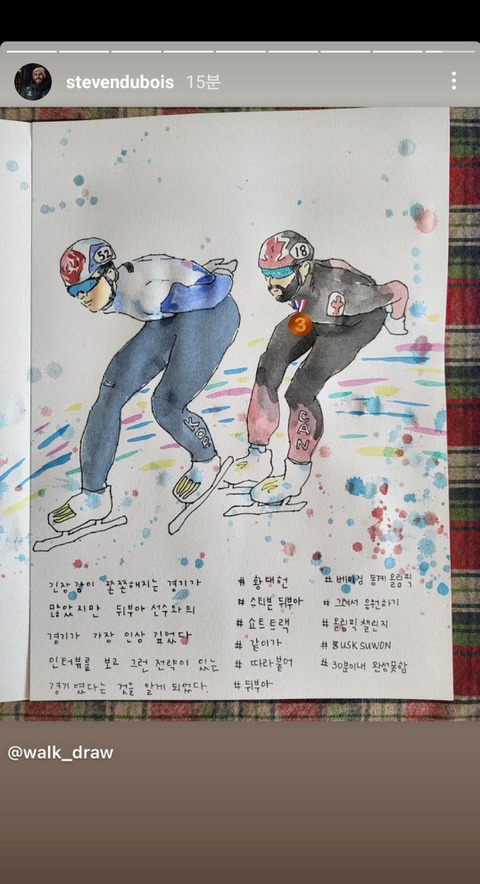 stevendubois 15분
52
18
3
KOR
CAN
긴장감이 쫄쫀해지는 경기가
많았지만 뒤부아 선수와의
경기가 가장 인상 깊었다
인터뷰를 보고 그런 전략이 있는
경기였다는 것을 알게 되었다.
# 황대헌
# 스티븐 뒤부아
# 쇼트트랙
# 같이가
# 따라붙어
# 뒤부아
# 베이징 동계 올림픽
# 그려서 응원하기
# 올림픽 챌린지
# USK SUWON
# 30분이내 완성못함
@walk_draw